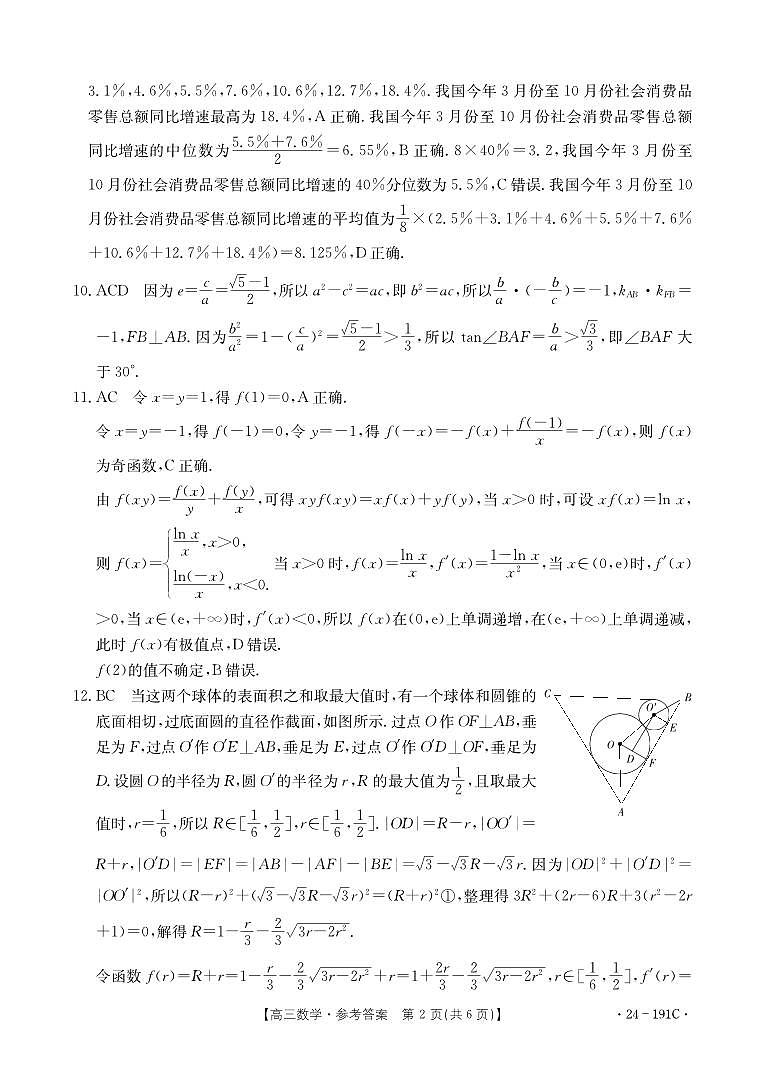 3.1%,4.6%,5.5%,7.6%,10.6%,12.7%,18.4%.我国今年3月份至10月份社会消费品
零售总额同比增速最高为18.4%,A正确.我国今年3月份至10月份社会消费品零售总额
同比增速的中位数为\frac{5.5%+7.6%}{2}=6.55%,B正确.8×40%=3.2,我国今年3月份至
10月份社会消费品零售总额同比增速的40%分位数为5.5%,C错误.我国今年3月份至10
月份社会消费品零售总额同比增速的平均值为\frac{1}{8}×(2.5%+3.1%+4.6%+5.5%+7.6%
+10.6%+12.7%+18.4%)=8.125%,D正确.
10. ACD 因为e=\frac{c}{a}=\frac{√5-1}{2},所以a²-c²=ac,即b²=ac,所以\frac{b}{a}·(-\frac{b}{c})=-1,k_{AB}·k_{FB}=
-1,FB⊥AB.因为\frac{b²}{a²}=1-(\frac{c}{a})²=\frac{√5-1}{2}>\frac{1}{3},所以tan∠BAF=\frac{b}{a}>\frac{√3}{3},即∠BAF大
于30°.
11. AC 令x=y=1,得f(1)=0,A正确.
令x=y=-1,得f(-1)=0,令y=-1,得f(-x)=-f(x)+\frac{f(-1)}{x}=-f(x),则f(x)
为奇函数,C正确.
由f(xy)=\frac{f(x)}{y}+\frac{f(y)}{x},可得xyf(xy)=xf(x)+yf(y),当x>0时,可设xf(x)=ln x,
则f(x)={\frac{ln x}{x},x>0, \frac{ln(-x)}{x},x<0. 当x>0时,f(x)=\frac{ln x}{x},f′(x)=\frac{1-ln x}{x²},当x∈(0,e)时,f′(x)
>0,当x∈(e,+∞)时,f′(x)<0,所以f(x)在(0,e)上单调递增,在(e,+∞)上单调递减,
此时f(x)有极值点,D错误.
f(2)的值不确定,B错误.
12. BC 当这两个球体的表面积之和取最大值时,有一个球体和圆锥的
底面相切,过底面圆的直径作截面,如图所示.过点O作OF⊥AB,垂
足为F,过点O′作O′E⊥AB,垂足为E,过点O′作O′D⊥OF,垂足为
D.设圆O的半径为R,圆O′的半径为r,R的最大值为\frac{1}{2},且取最大
值时,r=\frac{1}{6},所以R∈[\frac{1}{6},\frac{1}{2}],r∈[\frac{1}{6},\frac{1}{2}].|OD|=R-r,|OO′|=
C
B
O′
E
O
D
F
A
R+r,|O′D|=|EF|=|AB|-|AF|-|BE|=√3-√3R-√3r.因为|OD|²+|O′D|²=
|OO′|²,所以(R-r)²+(√3-√3R-√3r)²=(R+r)²①,整理得3R²+(2r-6)R+3(r²-2r
+1)=0,解得R=1-\frac{r}{3}-\frac{2}{3}√(3r-2r²).
令函数f(r)=R+r=1-\frac{r}{3}-\frac{2}{3}√(3r-2r²)+r=1+\frac{2r}{3}-\frac{2}{3}√(3r-2r²),r∈[\frac{1}{6},\frac{1}{2}],f′(r)=
【高三数学·参考答案 第2页(共6页)】 ·24-191C·